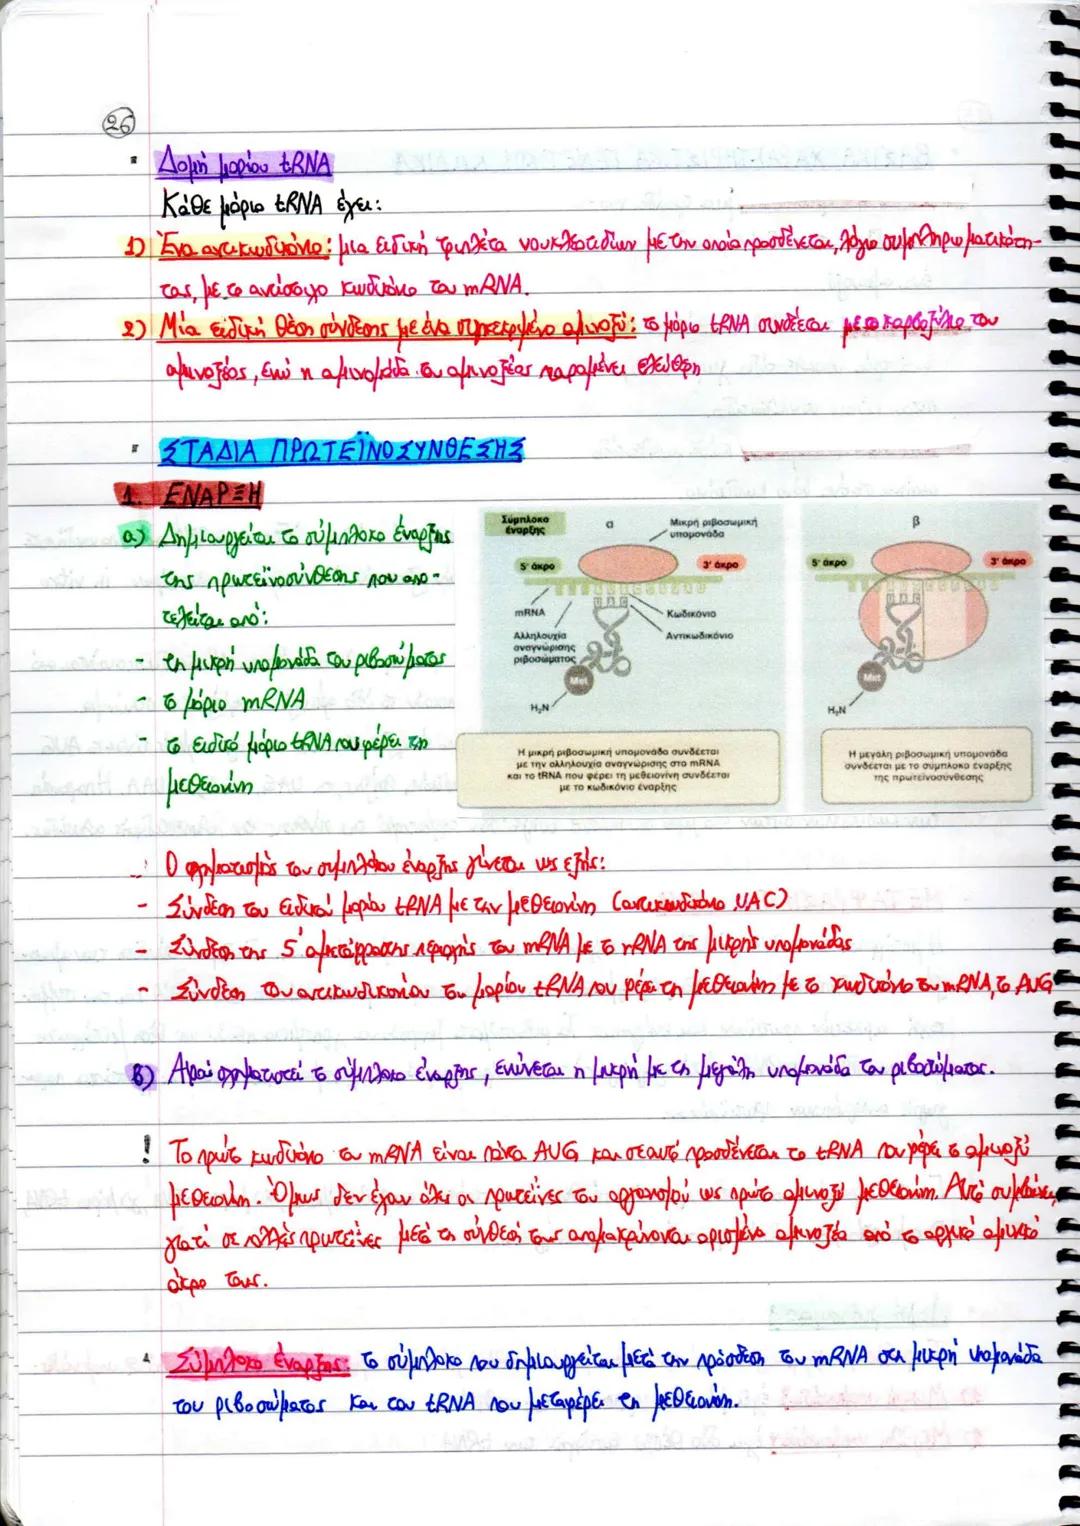 26
Δομή μορίου tRNA
Κάθε μόριο tRNA έχει:
1) Ένα αντικωδικόνιο: μια ειδική τριπλέτα νουκλεοτιδίων με την οποία προσδένεται, λόγω συμπληρωματικότη-
τας, με το αντίστοιχο κωδικόνιο του mRNA.
2) Μία ειδική θέση σύνδεσης με ένα συγκεκριμένο αμινοξύ: το μόριο tRNA συνδέεται με το καρβοξύλιο του
αμινοξέος, ενώ η αμινομάδα του αμινοξέος παραμένει ελεύθερη
ΣΤΑΔΙΑ ΠΡΩΤΕΪΝΟΣΥΝΘΕΣΗΣ
1. ΕΝΑΡΞΗ
α) Δημιουργείται το σύμπλοκο έναρξης
της πρωτεϊνοσύνθεσης που απο-
τελείται από:
- τη μικρή υπομονάδα του ριβοσώματος
- το μόριο mRNA
- το ειδικό μόριο tRNA που φέρει τη
μεθειονίνη
Σύμπλοκο
έναρξης
α
Μικρή ριβοσωμική
υπομονάδα
5' άκρο
3' άκρο
mRNA
Κωδικόνιο
Αλληλουχία
αναγνώρισης
ριβοσώματος
Αντικωδικόνιο
U A C
Met
H₂N
Η μικρή ριβοσωμική υπομονάδα συνδέεται
με την αλληλουχία αναγνώρισης στο mRNA
και το tRNA που φέρει τη μεθειονίνη συνδέεται
με το κωδικόνιο έναρξης
β
5' άκρο
3' άκρο
U A C
Met
H₂N
Η μεγάλη ριβοσωμική υπομονάδα
συνδέεται με το σύμπλοκο έναρξης
της πρωτεϊνοσύνθεσης
Ο σχηματισμός του συμπλόκου έναρξης γίνεται ως εξής:
- Σύνδεση του ειδικού μορίου tRNA με την μεθειονίνη (αντικωδικόνιο UAC)
- Σύνδεση της 5' αμετάφραστης περιοχής του mRNA με το rRNA της μικρής υπομονάδας
- Σύνδεση του αντικωδικονίου του μορίου tRNA που φέρει τη μεθειονίνη με το κωδικόνιο του mRNA, το AUG
β) Αφού σχηματιστεί το σύμπλοκο έναρξης, ενώνεται η μικρή με τη μεγάλη υπομονάδα του ριβοσώματος.
! Το πρώτο κωδικόνιο του mRNA είναι πάντα AUG και σε αυτό προσδένεται το tRNA που φέρει το αμινοξύ
μεθειονίνη. Όμως δεν έχουν όλες οι πρωτεΐνες του οργανισμού ως πρώτο αμινοξύ μεθειονίνη. Αυτό συμβαίνει,
γιατί σε πολλές πρωτεΐνες μετά τη σύνθεσή τους απομακρύνονται ορισμένα αμινοξέα από το αρχικό αμινικό
άκρο τους.
Σύμπλοκο έναρξης: το σύμπλοκο που δημιουργείται μετά την πρόσδεση του mRNA στη μικρή υπομονάδα
του ριβοσώματος και του tRNA που μεταφέρει τη μεθειονίνη.